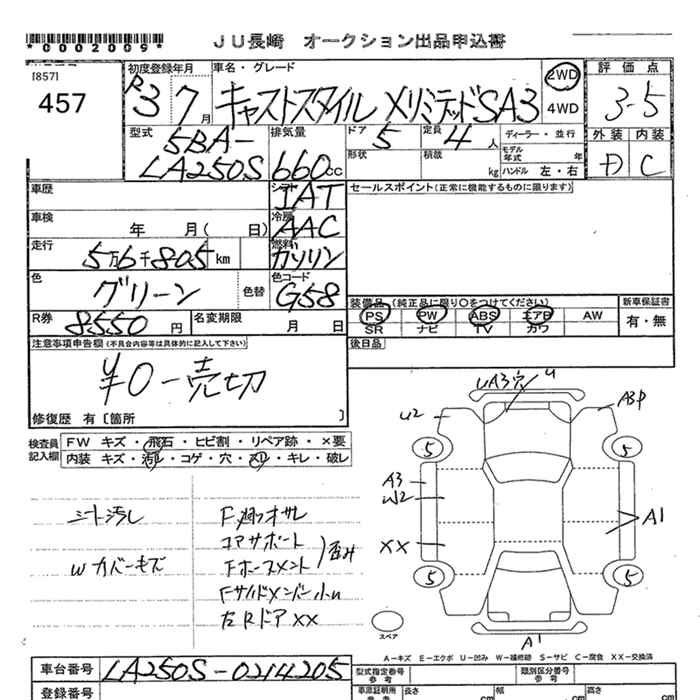 *0002009*
JU長崎 オークション出品申込書
[857]
457
初度登録年月
R3 7月
車名・グレード
キャストスタイル メリミテッドSA3
2WD
4WD
評価点
3-5
外装 内装
D C
型式
5BA-
LA250S
排気量
660cc
ドア 5
定員 4人
ディーラー・並行
形状
積載 kg
モデル年式 年
ハンドル 左・右
車歴
シフト
IAT
セールスポイント(正常に機能するものに限ります)
車検 年 月( 日)
冷房
AAC
走行 5万6千805km
燃料
ガソリン
色 グリーン
色替
色コード
G58
装備品(純正品に限り○をつけてください)
新車保証書
PS PW ABS エアB AW
有・無
SR ナビ TV カワ
R券 8550円
名変期限 月 日
後日品
注意事項申告欄(不具合内容等は具体的に記入して下さい)
¥0-売切
修復歴 有〔箇所 〕
検査員記入欄
FW キズ・飛石・ヒビ割・リペア跡・×要
内装 キズ・汚れ・コゲ・穴・スリ・キレ・破レ
シート汚し
Wカバーキズ
コアサポート
左RドアXX
歪み
UA3穴 U
A3P
U2
5
5
A3
W2
A1
XX
5
5
A1
スペア
A-キズ E-エクボ U-凹み W-補修跡 S-サビ C-腐食 XX-交換済
車台番号 LA250S-0214205
型式指定番号 参考
類別区分番号 参考
登録番号
車庫証明用 参考
長さ cm
幅 cm
高さ cm